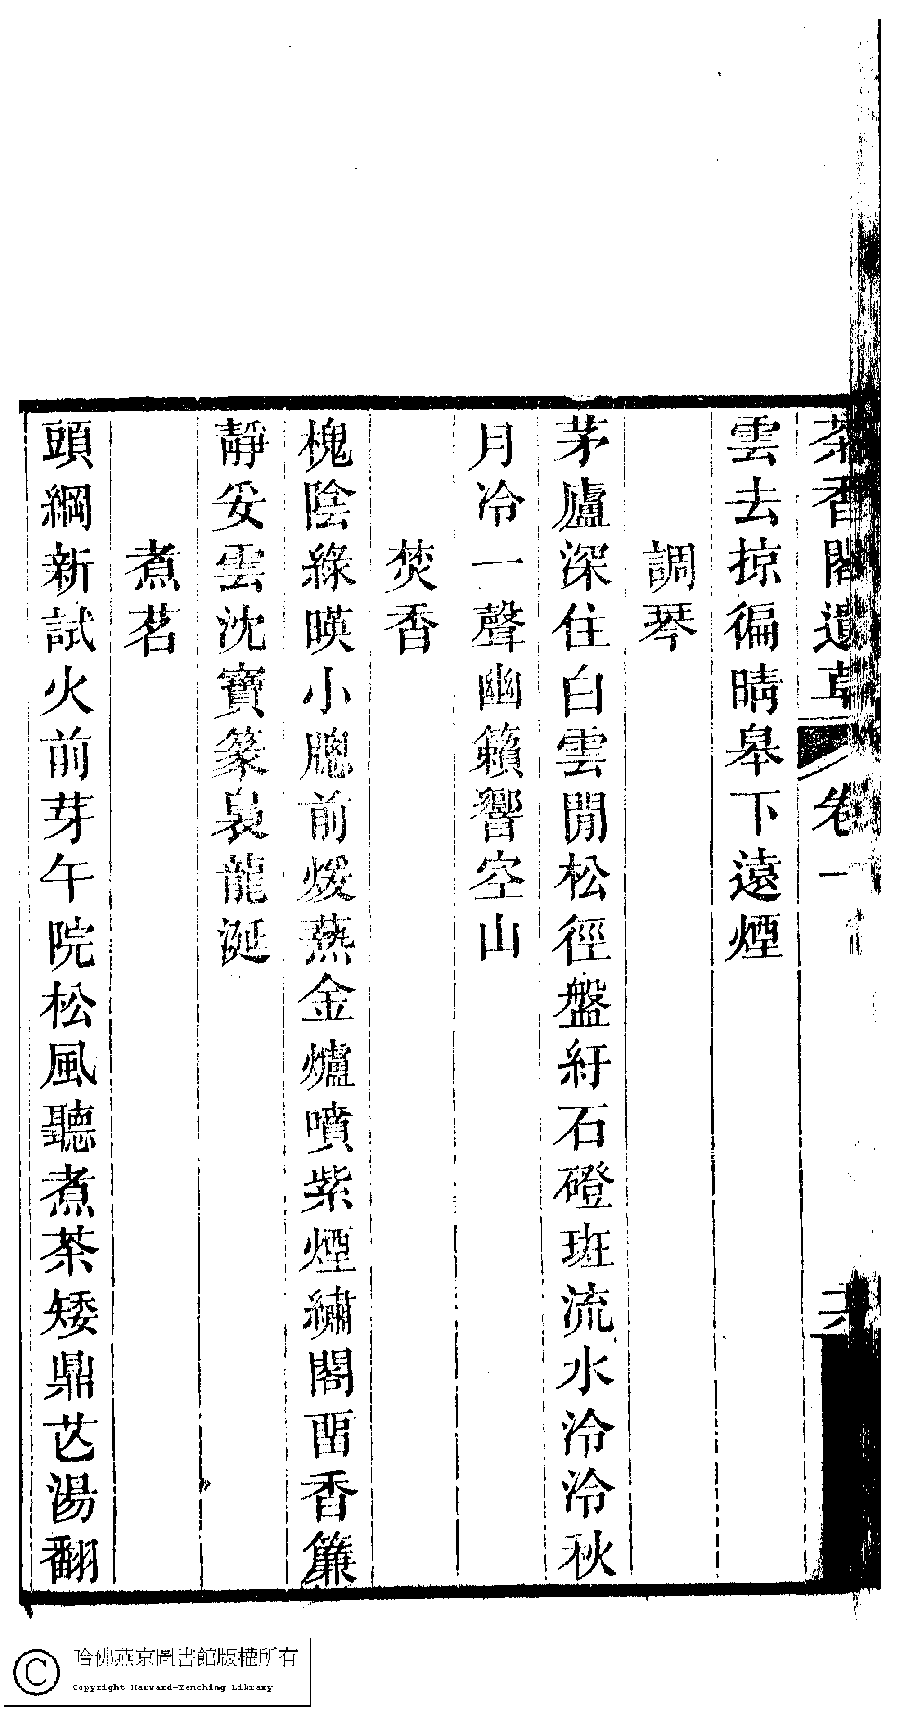 茶香閣遺草 卷一 六
雲去掠徧晴皋下遠煙
調琴
茅廬深住白雲閒松徑盤紆石磴班流水泠泠秋
月冷一聲幽籟響空山
焚香
槐陰綠暎小牕前煖爇金爐噴紫煙繡閣畱香簾
靜妥雲沈寶篆裊龍涎
煮茗
頭綱新試火前芽午院松風聽煮茶矮鼎芯湯翻
哈佛燕京圖書館版權所有
Copyright Harvard-Yenching Library